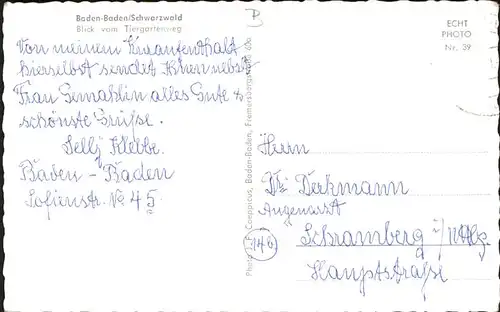 Baden-Baden/Schwarzwald
Blick vom Tiergartenweg
B
ECHT
PHOTO
Nr. 39
Von meinem Kuraufenthalt
hierselbst sendet Ihnen nebst
Frau Gemahlin alles Gute &
schönste Grüße.
Klebbe.
Baden-Baden
Sofienstr. No 45
Herrn
Dr. Derkmann
Augenarzt
Schramberg
Hauptstraße
146
Baden-Baden, Fremersbergstraße